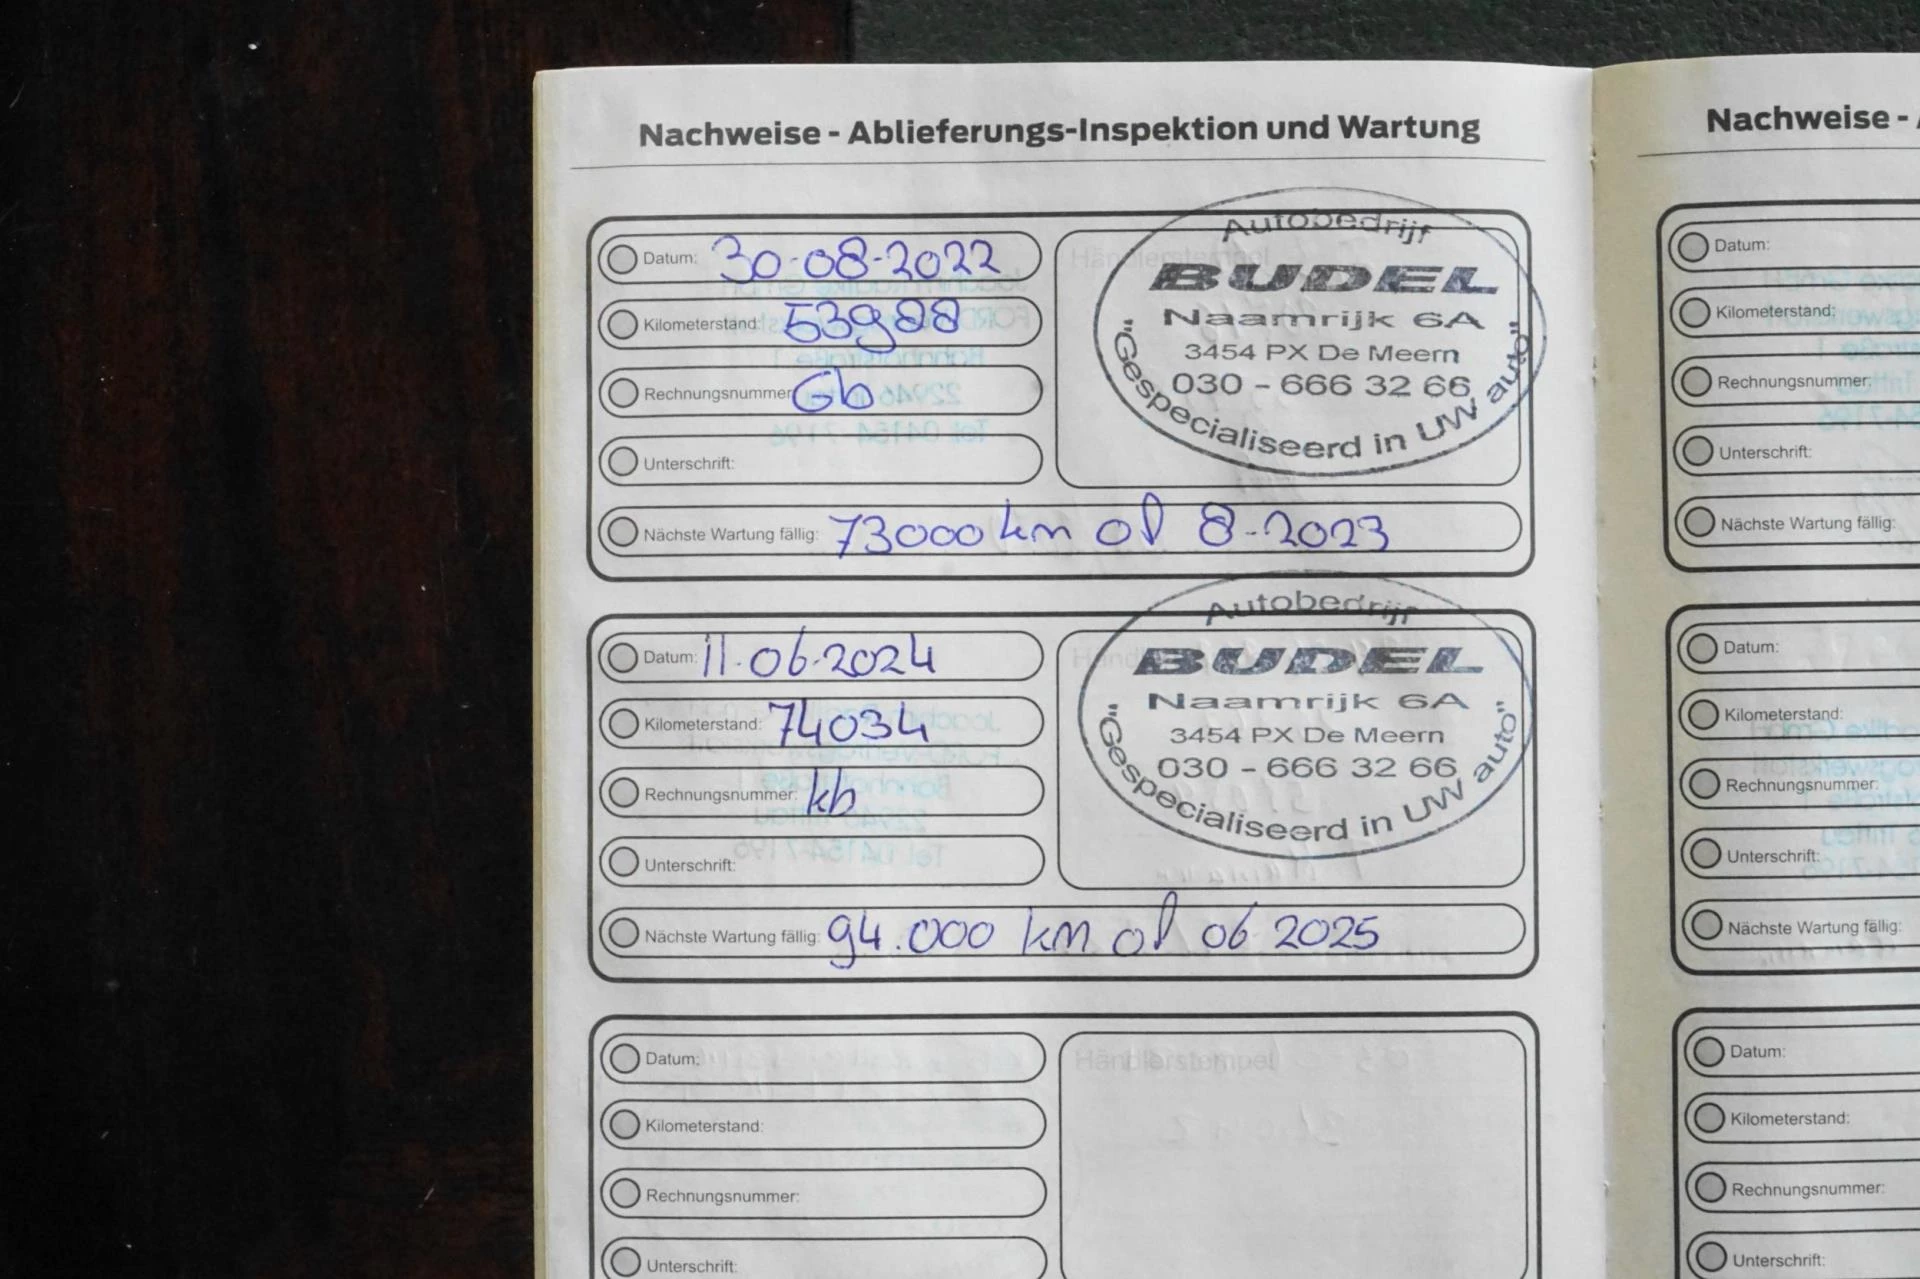 Nachweise - Ablieferungs-Inspektion und Wartung
Datum: 30-08-2022
Kilometerstand: 53988
Rechnungsnummer: Gb
Unterschrift:
Händlerstempel
Autobedrijf
BUDEL
Naamrijk 6A
3454 PX De Meern
030 - 666 32 66
"Gespecialiseerd in UW auto"
Nächste Wartung fällig: 73000 km of 8-2023
Datum: 11-06-2024
Kilometerstand: 74034
Rechnungsnummer: kb
Unterschrift:
Autobedrijf
BUDEL
Naamrijk 6A
3454 PX De Meern
030 - 666 32 66
"Gespecialiseerd in UW auto"
Nächste Wartung fällig: 94.000 km of 06 2025
Datum:
Kilometerstand:
Rechnungsnummer:
Unterschrift:
Händlerstempel
Nachweise -
Datum:
Kilometerstand:
Rechnungsnummer:
Unterschrift:
Nächste Wartung fällig:
Datum:
Kilometerstand:
Rechnungsnummer:
Unterschrift:
Nächste Wartung fällig:
Datum:
Kilometerstand:
Rechnungsnummer:
Unterschrift: